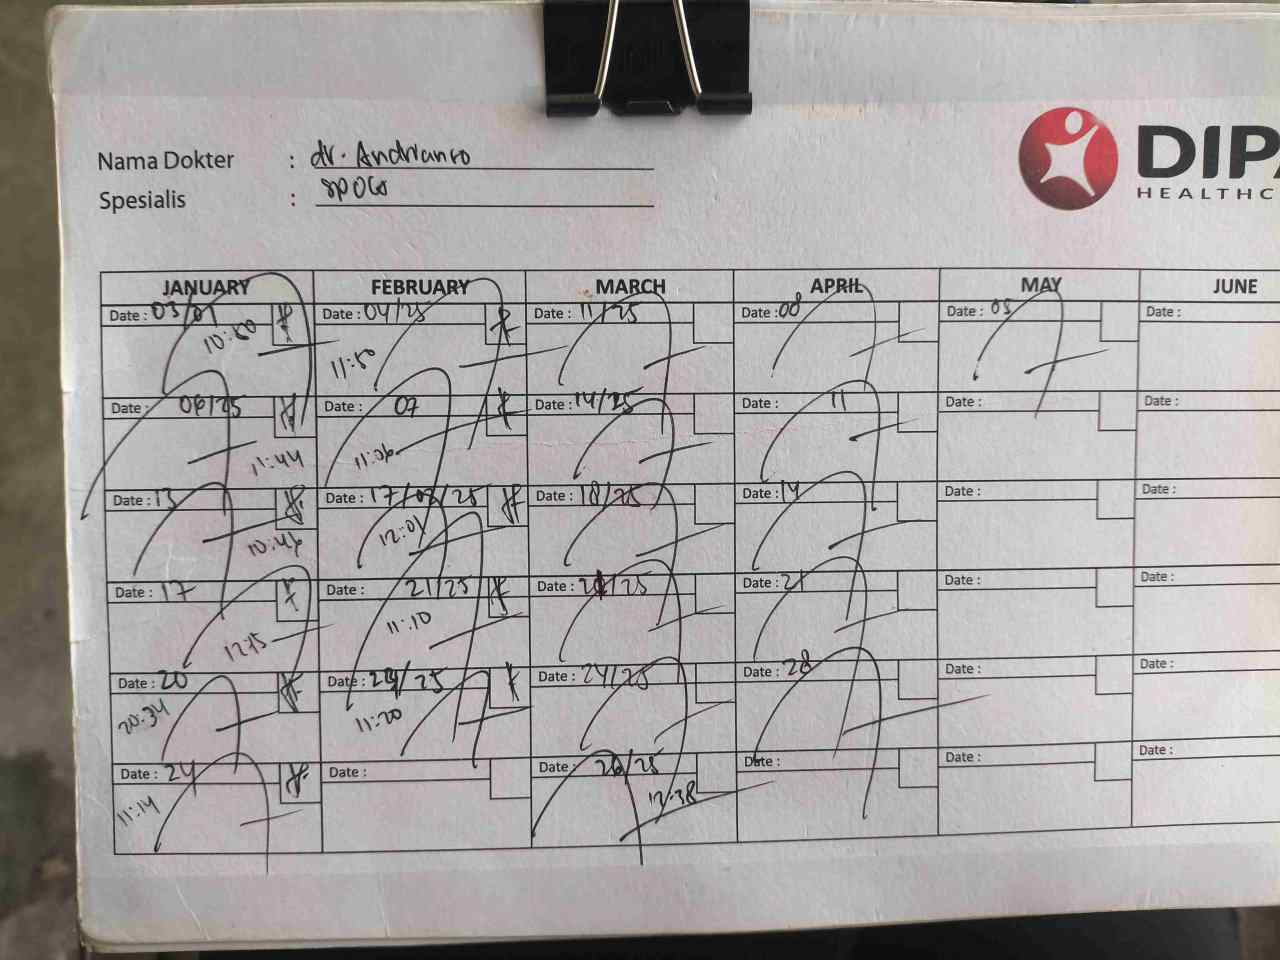 Nama Dokter : dr. Andrianto
Spesialis : SPOG
DIPA
HEALTHC
JANUARY FEBRUARY MARCH APRIL MAY JUNE
Date : 03/01 Date : 04/25 Date : 11/25 Date : 08 Date : 05 Date :
10:50 11:50
Date : 06/25 Date : 07 Date : 14/25 Date : 11 Date : Date :
11:44 11:06
Date : 13 Date : 17/02/25 Date : 18/25 Date : 14 Date : Date :
10:46 12:01
Date : 17 Date : 21/25 Date : 21/25 Date : 21 Date : Date :
11:10
Date : 20 Date : /25 Date : 24/25 Date : 28 Date : Date :
20:34 11:20
Date : 24 Date : Date : /25 Date : Date : Date :
11:14 12:38